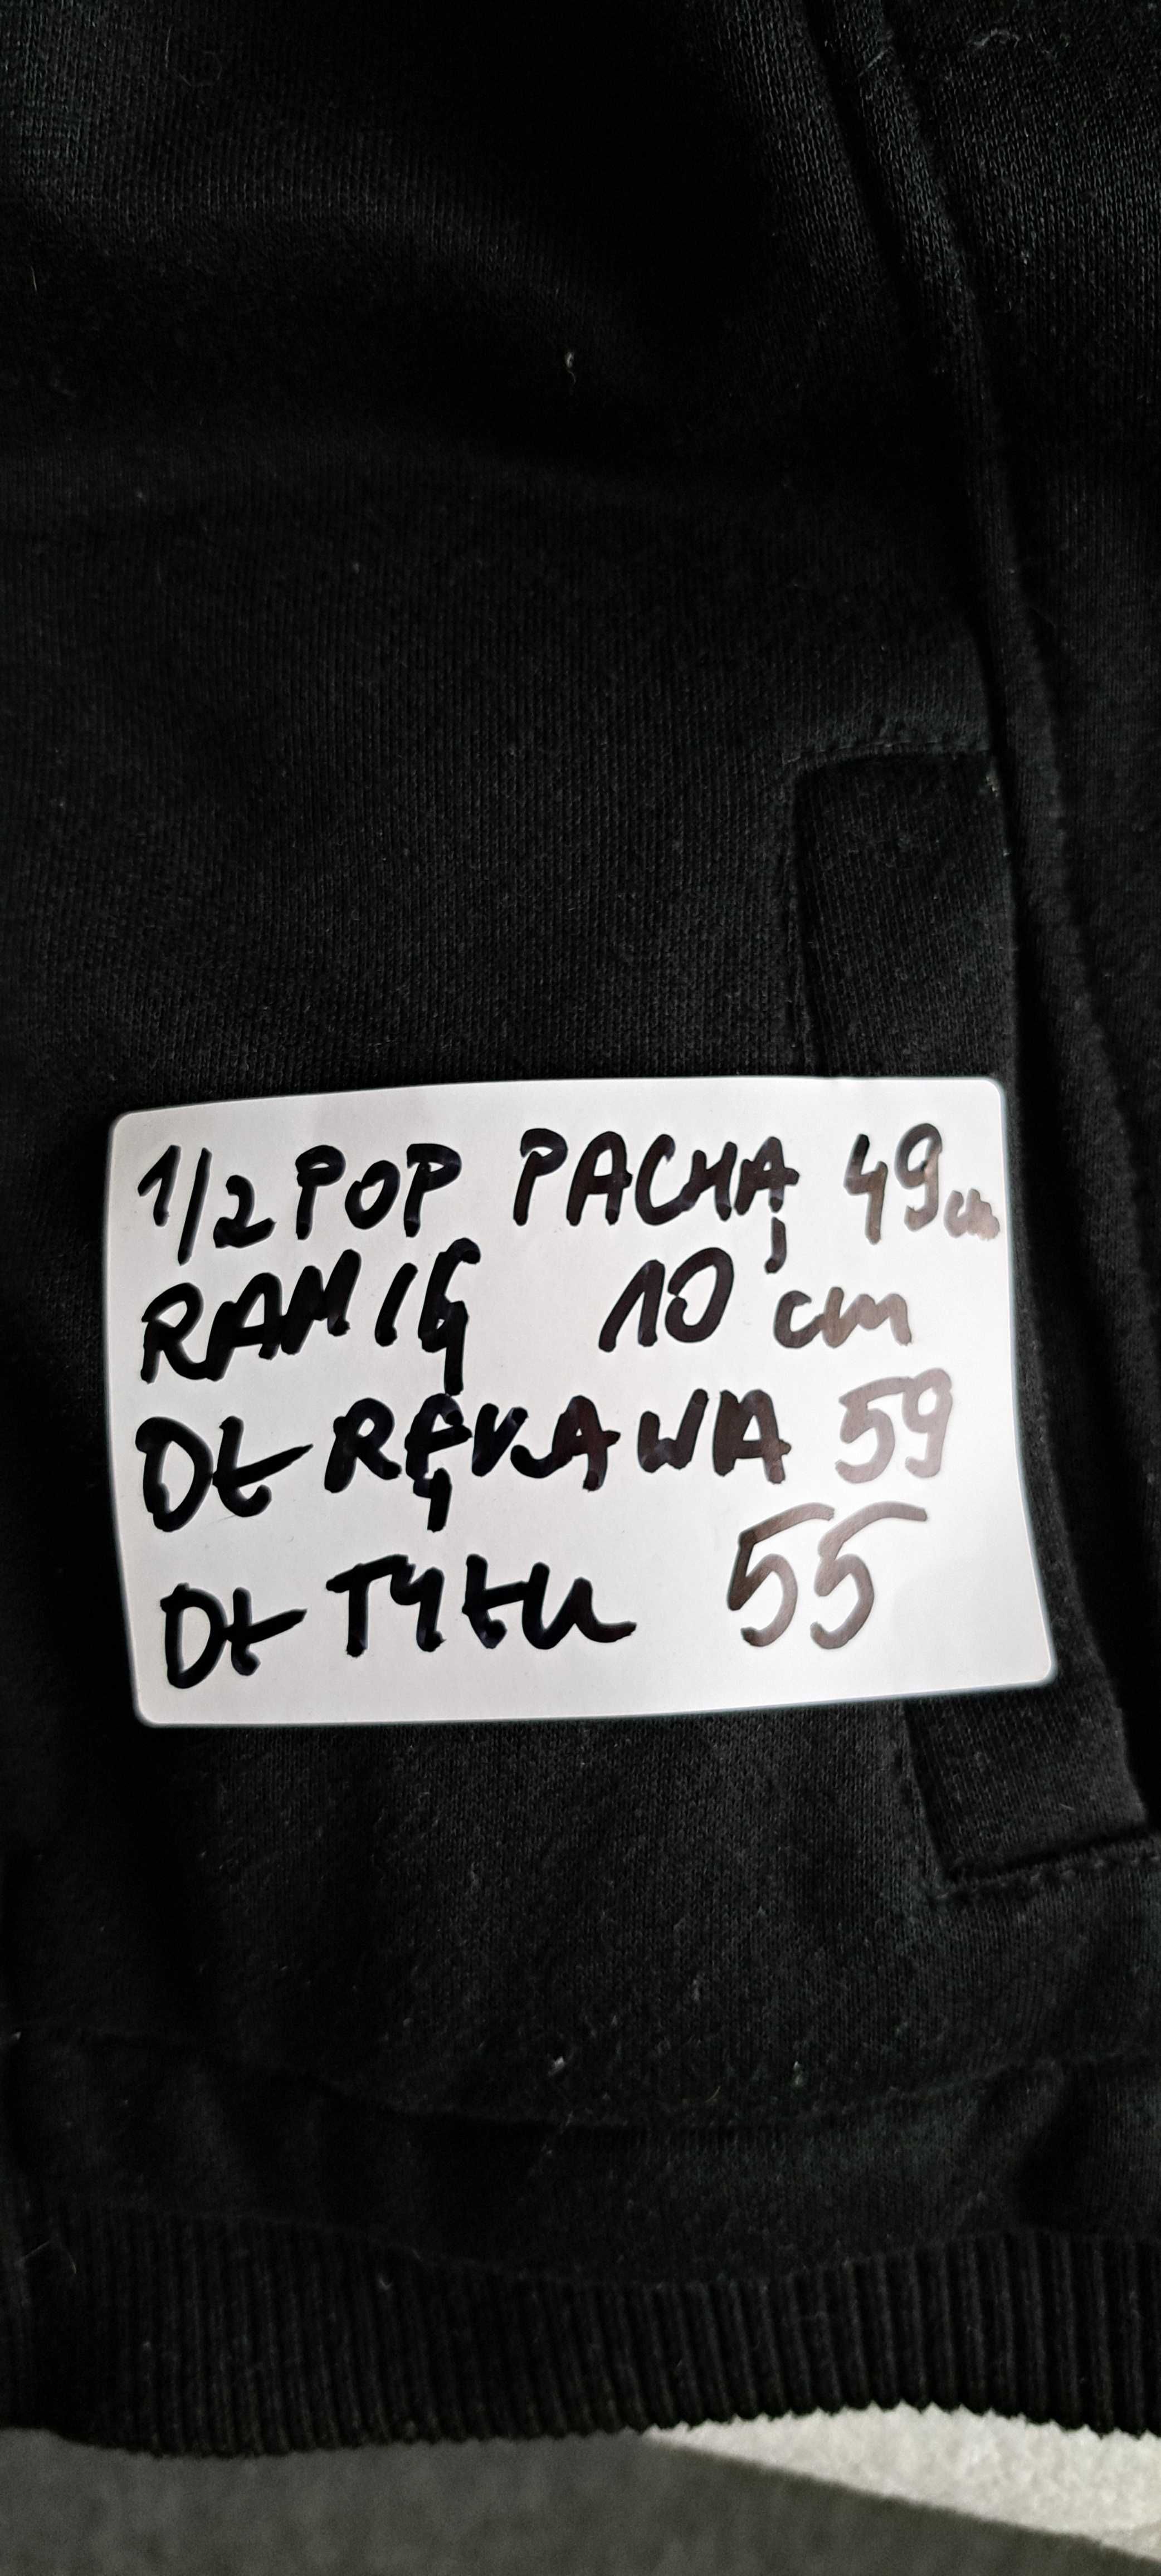 1/2 POP PACHĄ 49cm
RAMIĘ 10 cm
DŁ RĘKAWA 59
DŁ TYŁU 55